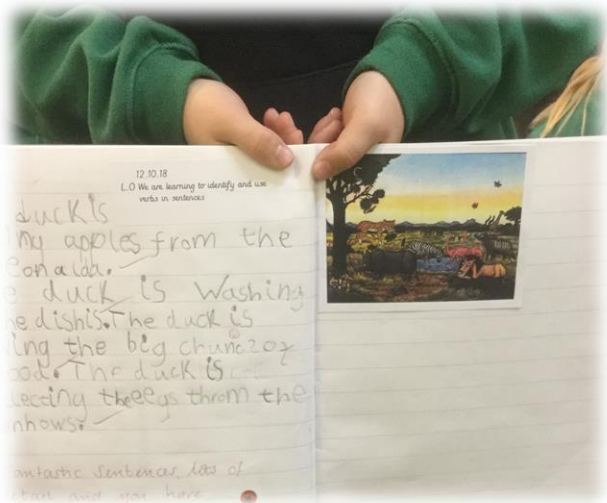 12.10.18
L.O We are learning to identify and use
verbs in sentences
duck is
ing apples from the
on a ldd.
e duck is Washing
he dishis. The duck is
ing the big chunc zoy
ood. The duck is
lecting theeegs throm the
nhows.
antastic sentences, lots of
and you have